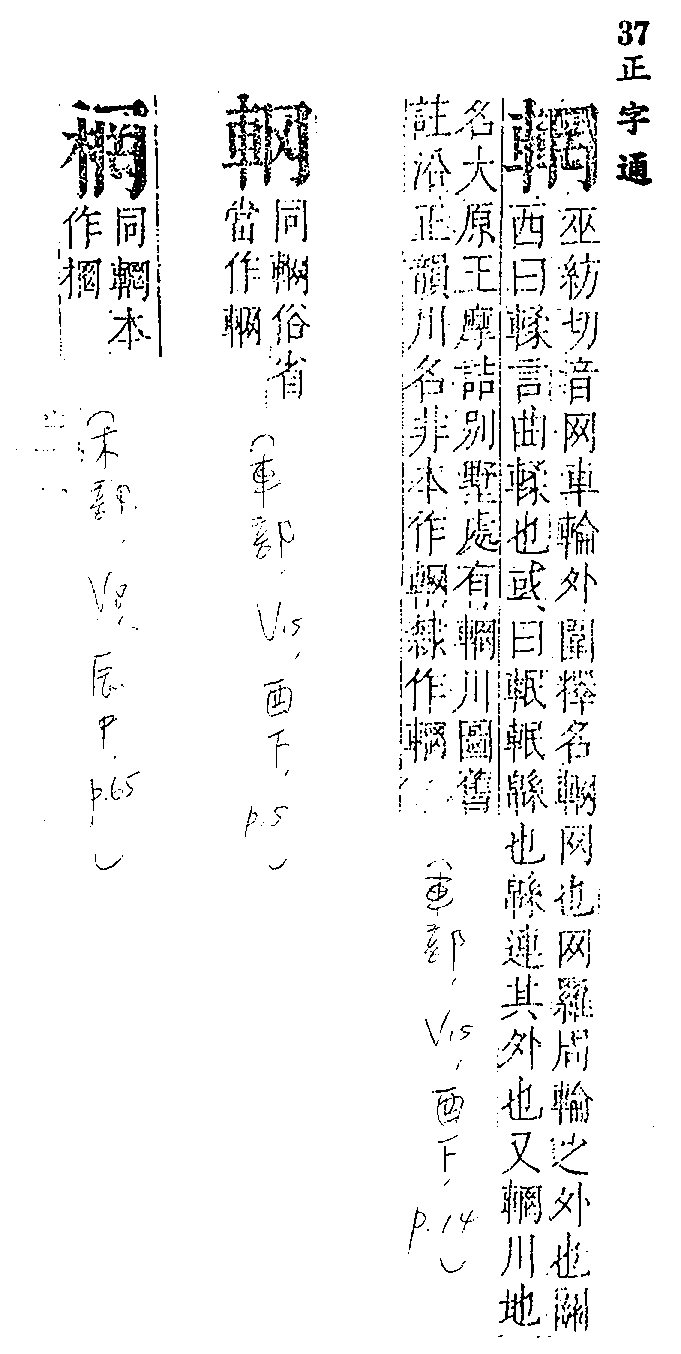 37正字通
輞
巫紡切音网車輪外圍釋名輞网也网羅周輪之外也關
西曰輮言曲輮也或曰緜也緜連其外也又輞川地
名大原王摩詰別墅處有輞川圖舊
註沿正韻川名非本作輞隸作輞
(車部, V15, 酉下, p.14)
同輞俗省
當作輞
(車部, V15, 酉下, p.5)
同輞本
作棢
(木部, V8, 辰中, p.65)